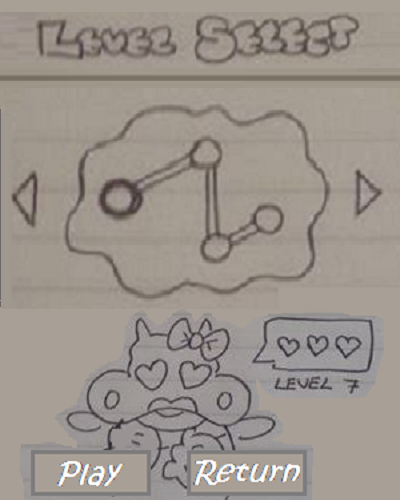 LEVEL SELECT
LEVEL 7
Play
Return